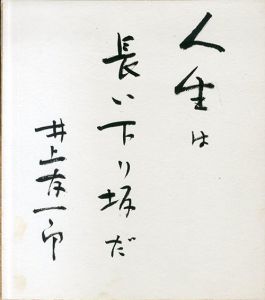 人生は
長い下り坂だ
井上友一郎